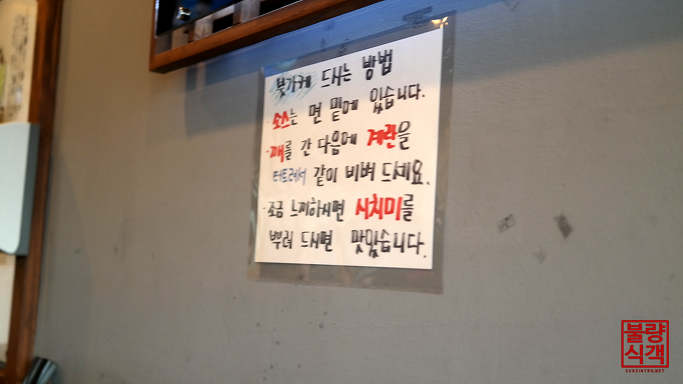 붓가케 드시는 방법
·소스는 면 밑에 있습니다.
·깨를 간 다음에 계란을
터트려서 같이 비벼 드세요.
·조금 느끼하시면 시치미를
뿌려 드시면 맛있습니다.
불량
식객